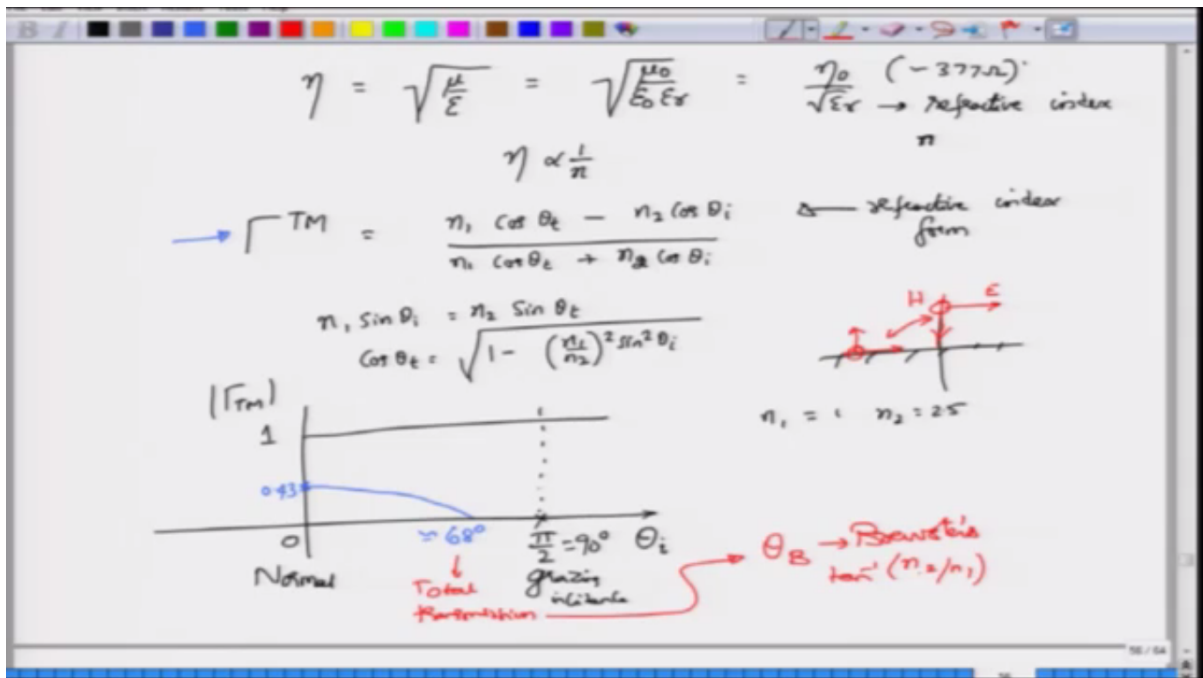 η = √(μ/ε) = √(μ0/(ε0 εr)) = η0/√εr (~377Ω)
→ refractive index
n
η ∝ 1/n
→ Γ^TM = (n1 cos θt − n2 cos θi)/(n1 cos θt + n2 cos θi) ← refractive index form
H E
n1 sin θi = n2 sin θt
cos θt = √(1 − (n1/n2)² sin² θi)
|ΓTM|
n1 = 1 n2 = 2.5
1
0.43
0 ≈ 68° π/2 = 90° θi
Normal
Total transmission
grazing incidence
θB → Brewster's
tan⁻¹ (n2/n1)
56 / 64